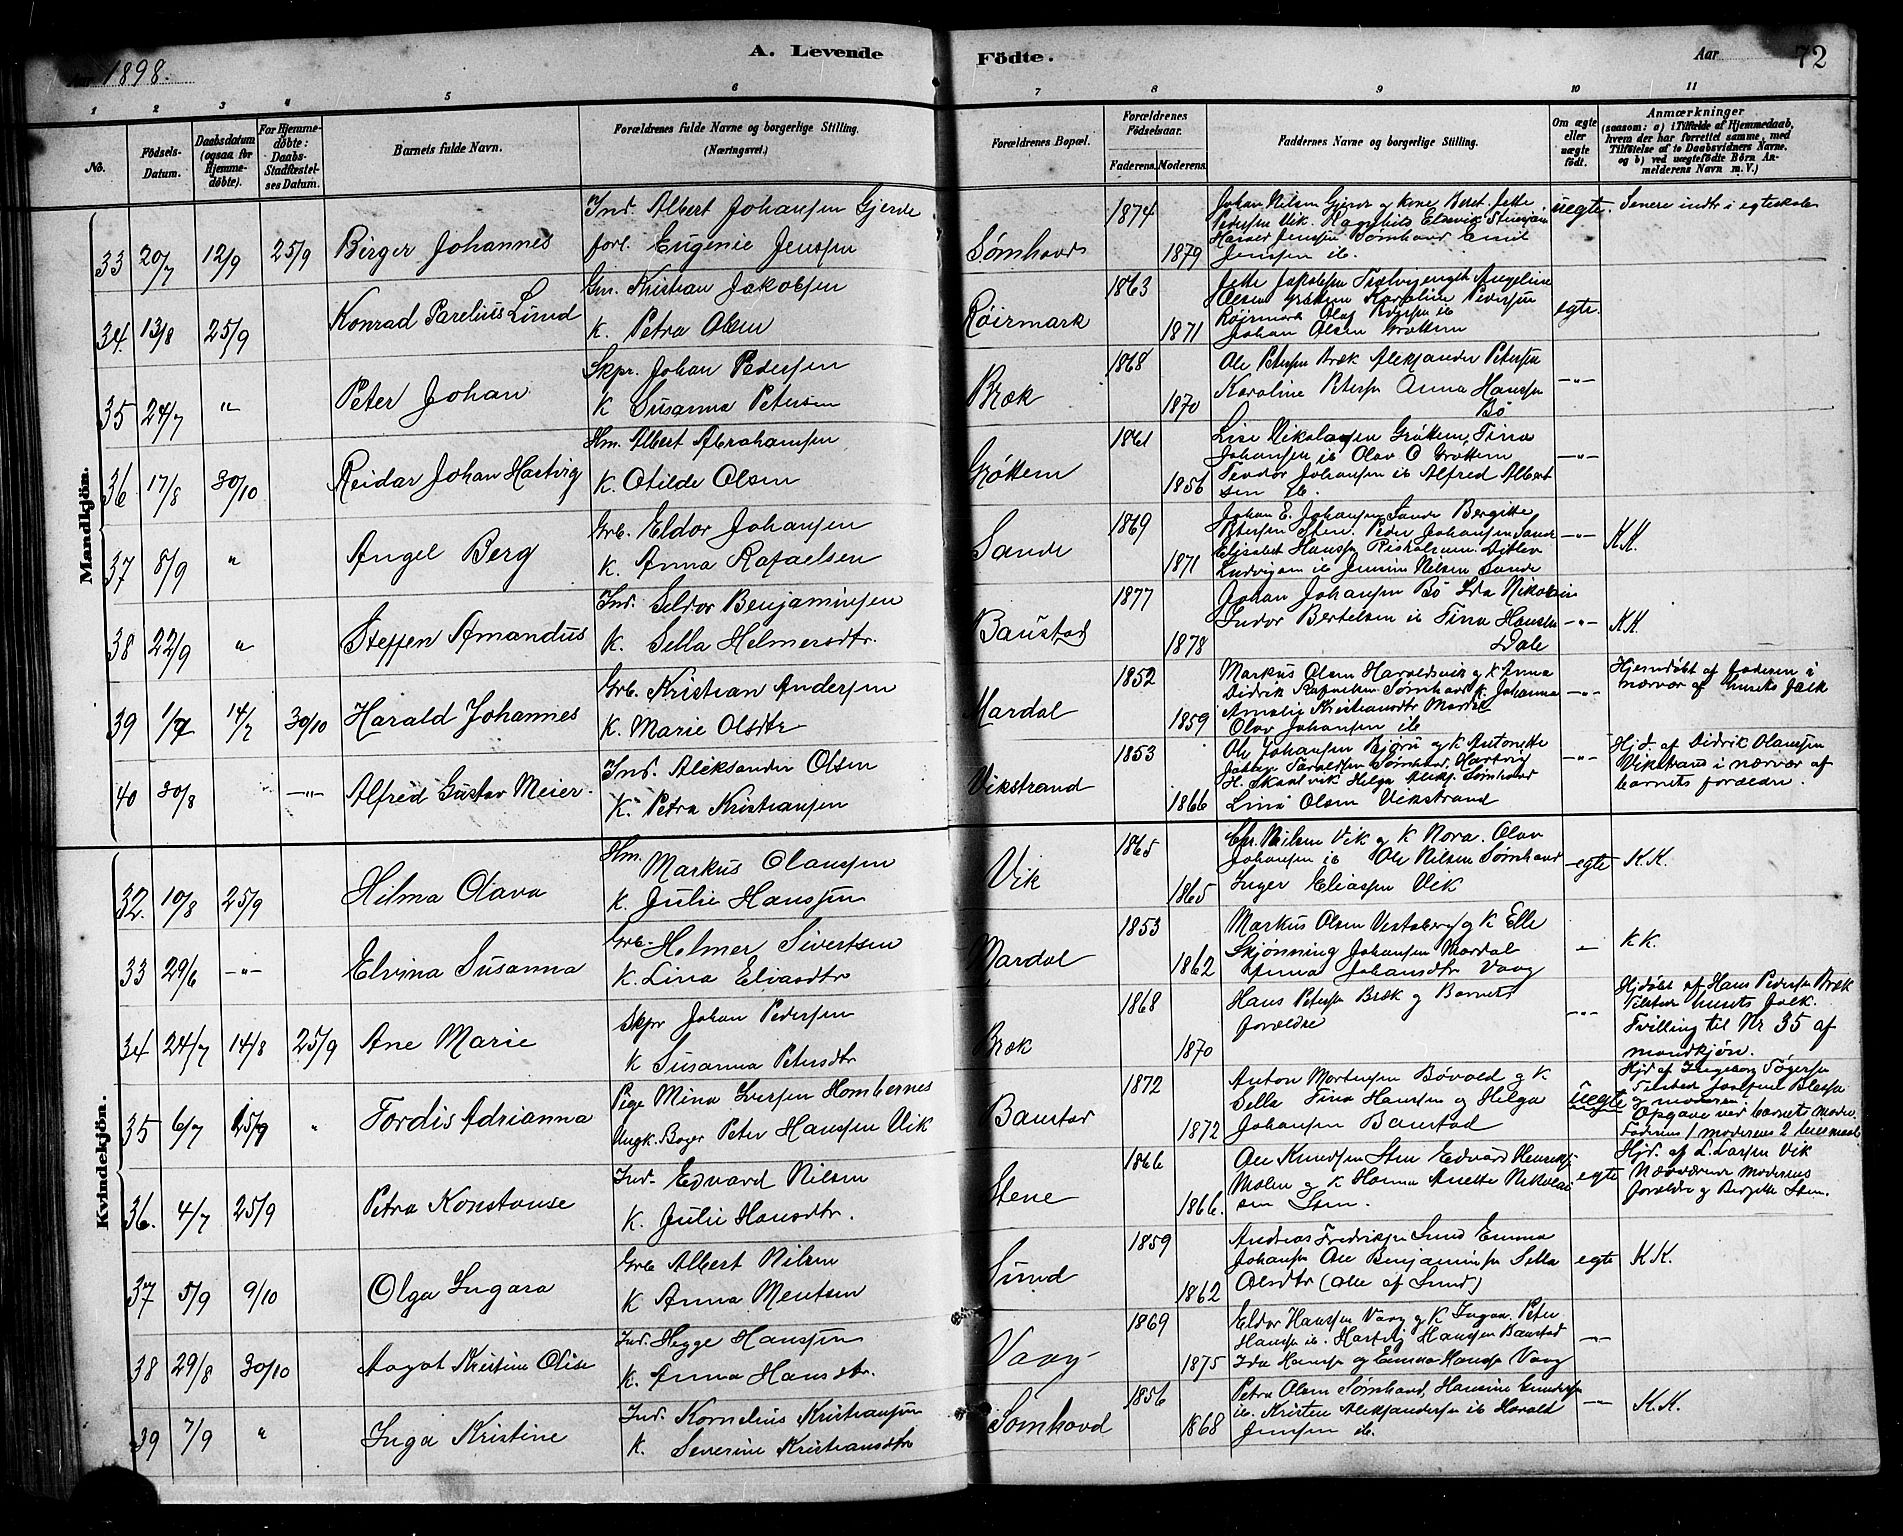 Aar 1898.
A. Levende
Födte.
Aar
72
1 2 3 4 5 6 7 8 9 10 11
No.
Födsels-Datum.
Daabsdatum (ogsaa for Hjemme-døbte).
For Hjemme-døbte: Daabs-Stadfæstel-ses Datum.
Barnets fulde Navn.
Forældrenes fulde Navne og borgerlige Stilling.
(Næringsvei.)
Forældrenes Bopæl.
Forældrenes Fødselsaar.
Faderens. Moderens.
Faddernes Navne og borgerlige Stilling.
Om ægte eller uægte födt.
Anmærkninger
(saasom: a) i Tilfælde af Hjemmedaab, hvem der har forrettet samme, med Tilföielse af to Daabsvidners Navne, og b) ved uægtefödte Börn An-melderens Navn m. V.)
Mandkjön.
33 20/7 12/9 25/9 Birger Johannes
Ind. Albert Johansen Gjerde
forl. Eugenie Jenssen
Sømhovd 1874 1879
Johan Nilsen Gjerde og kone Beret. Jette
Pedersen Vik. Ragnhild
Harald Jenssen Sømhovd Emil
Jenssen ib.
uegte. Senere indtr. i egteskab
34. 13/8 25/9 Konrad Parelius Lund
Gm. Kristian Jakobsen
K. Petra Olsen
Røirmark 1863 1871
Jette Jakobsen Angeline
Olsen Grøttem Karoline Pedersen
Røirmark Olaf ib
Johan Olsen Grøttem
egte.
35 24/7 " Peter Johan
Skpr. Johan Pedersen
K Susanna Petersen
Bræk 1868 1870
Ole Petersen Bræk Aleksander Petersen
Karoline Petersn Anna Hanssen
Bø
-"-
36 17/8 30/10 Reidar Johan Hartvig
Hm. Albert Abrahamsen
K. Otilde Olsen
Grøttem 1861 1856
Lise Nikolaysen Grøttem, Tina
Johansen ib Olav O Grøttem
Teodor Johansen ib Alfred Albert
sen ib.
-"-
37 8/9 " Angel Berg
Grb. Eldor Johansen
K. Anna Rafaelsen
Sande 1869 1871
Johan E. Johansen Sande Bergitte
Petersen Sten. Peder Johansen Sande
Elisabet Hanssn Risholmen Ditlev
Ludvigsen ib Jensine Nilsen Sande
-"- KK.
38 22/9 " Steffen Amandus
Ind. Seldor Benjaminsen
K. Sella Helmersdtr.
Baustad 1877 1878
Johan Johansen Bø Ida Nikolaisn
Indor Bertelsen ib Tina Hansen
Dale
-"- KK.
39 1/7 14/7 30/10 Harald Johannes
Grb. Kristian Andersen
K. Marie Olsdtr
Mardal 1852 1859
Markus Olsen Haroldsvik og K Anna
Didrik Rafaelsen Sømhovd K. Johanna
Amalie Kristiansdtr Mardal
Olav Johansen ib
-"- Hjemdøbt af faderen i
nærvær af husets folk
40 30/8 -"- Alfred Gustav Meier.
Ind. Aleksander Olsen
K. Petra Kristiansen
Vikstrand 1853 1866
Ole Johansen Bjørn og K Antonette
Johan Taraldsen Sømhovd, Hartvig
H. Skaalvik Helga Aleks. Sømhovd
Lina Olsen Vikstrand
-"- Hjd. af Didrik Olaussen
Vikstrand i nærvær af
barnets forældre.
Kvindekjön.
32. 10/8 25/9 Hilma Olava
Hm. Markus Olaussen
K. Julie Hanssen
Vik 1865 1865
Chr. Nilsen Vik og K Nora. Olav
Johansen ib Ole Nilsen Sømhovd
Inger Eliassen Vik
egte K.K.
33 29/6 -"- Elvina Susanna
Grb. Helmer Sivertsen
K. Lina Eliasdtr
Mardal 1853 1862
Markus Olsen Vestaberg og K Elle
Skjønning Johansen Mardal
Anna Johansdtr Vaag
- KK.
34 24/7 14/8 25/9 Ane Marie
Skpr Johan Pedersen
K Susanna Petersdtr
Bræk 1868 1870
Hans Petersn Bræk og Barnets
forældre
-"- Hjdøbt af Hans Pedersen Bræk
Tilsted husets folk.
Tvilling til Nr 35 af
mandkjøn.
35 6/7 25/9 " Tordis Adrianna
Pige Mina Iversen Hombernes
Ungk. Peter Hanssen Vik
Baustad 1872 1872
Anton Mortensen Bøvald og K
Sella Tina Hanssen og Helga
Johansen Baustad
uegte
Hjd af Ingeborg
Tilsted
og moderen.
Opgave ved barnets moder.
Faderens 1 moderens 2 leiermaal
36. 4/7 25/9 Petra Konstanse
Ind. Edvard Nilsen
K. Julie Hansdtr.
Stene 1866 1866.
Ole Knudsen Sten Edvard
Molen og K Hanna Anette Nikolai
sen Sten.
egte Hjd. af L. Larsen Vik
Nærværende moderens
forældre og Bergitte Sten.
37 5/9 9/10 Olga Ingara
Grb Albert Nilsen
K Anna Mentsen
Sund 1859 1862
Andreas Fredriksen Sund Emma
Johansn Ole Benjaminsn Sella
Olsdtr (alle af Sund)
egte K.K.
38 29/8 30/10 Aagot Kristine Olise
Ind. Hegge Hanssen
K. Anna Hansdtr.
Vaag 1869 1875
Eldor Hanssen Vaag og K Inga. Peter
Hanssn ib. Hartvig Hanssen Baustad
Ida Hanssn og Emma Hanssn Vaag
-"-
39 7/9 " Inga Kristine
Ind. Kornelius Kristiansen
K. Severine Kristiansdtr
Sømhovd 1856 1868
Petra Olsen Sømhovd, Hansine
ib. Kristen Aleksandersen ib Harald
Jenssen ib.
-"- K.K.